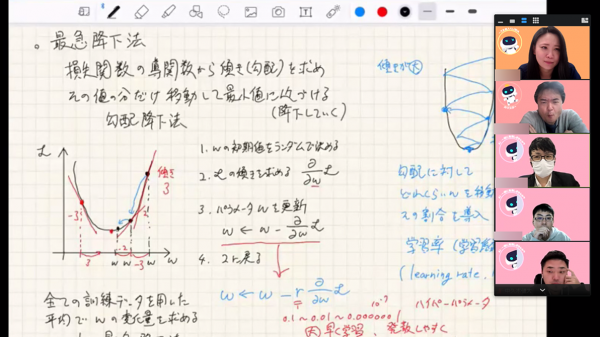 。最急降下法
損失関数の導関数から傾き(勾配)を求め
その値の分だけ移動して最小値に近づける
勾配降下法 (降下していく)
傾きが大
1. wの初期値をランダムで決める
2. Lの傾きを求める ∂/∂w L
3. パラメータwを更新
w ← w - ∂/∂w L
4. 2に戻る
L
傾き
3
-3
2
3 -2 -3
w w w w
w ← w - r ∂/∂w L
0.1 ~ 0.01 ~ 0.000000 1
10⁻⁷
大 早く学習、発散しやすく
勾配に対して
どれくらい w を移動
その割合を導入
学習率 (学習
(learning rate,
ハイパーパラメータ
全ての訓練データを用いた
平均で w の変化量を求める